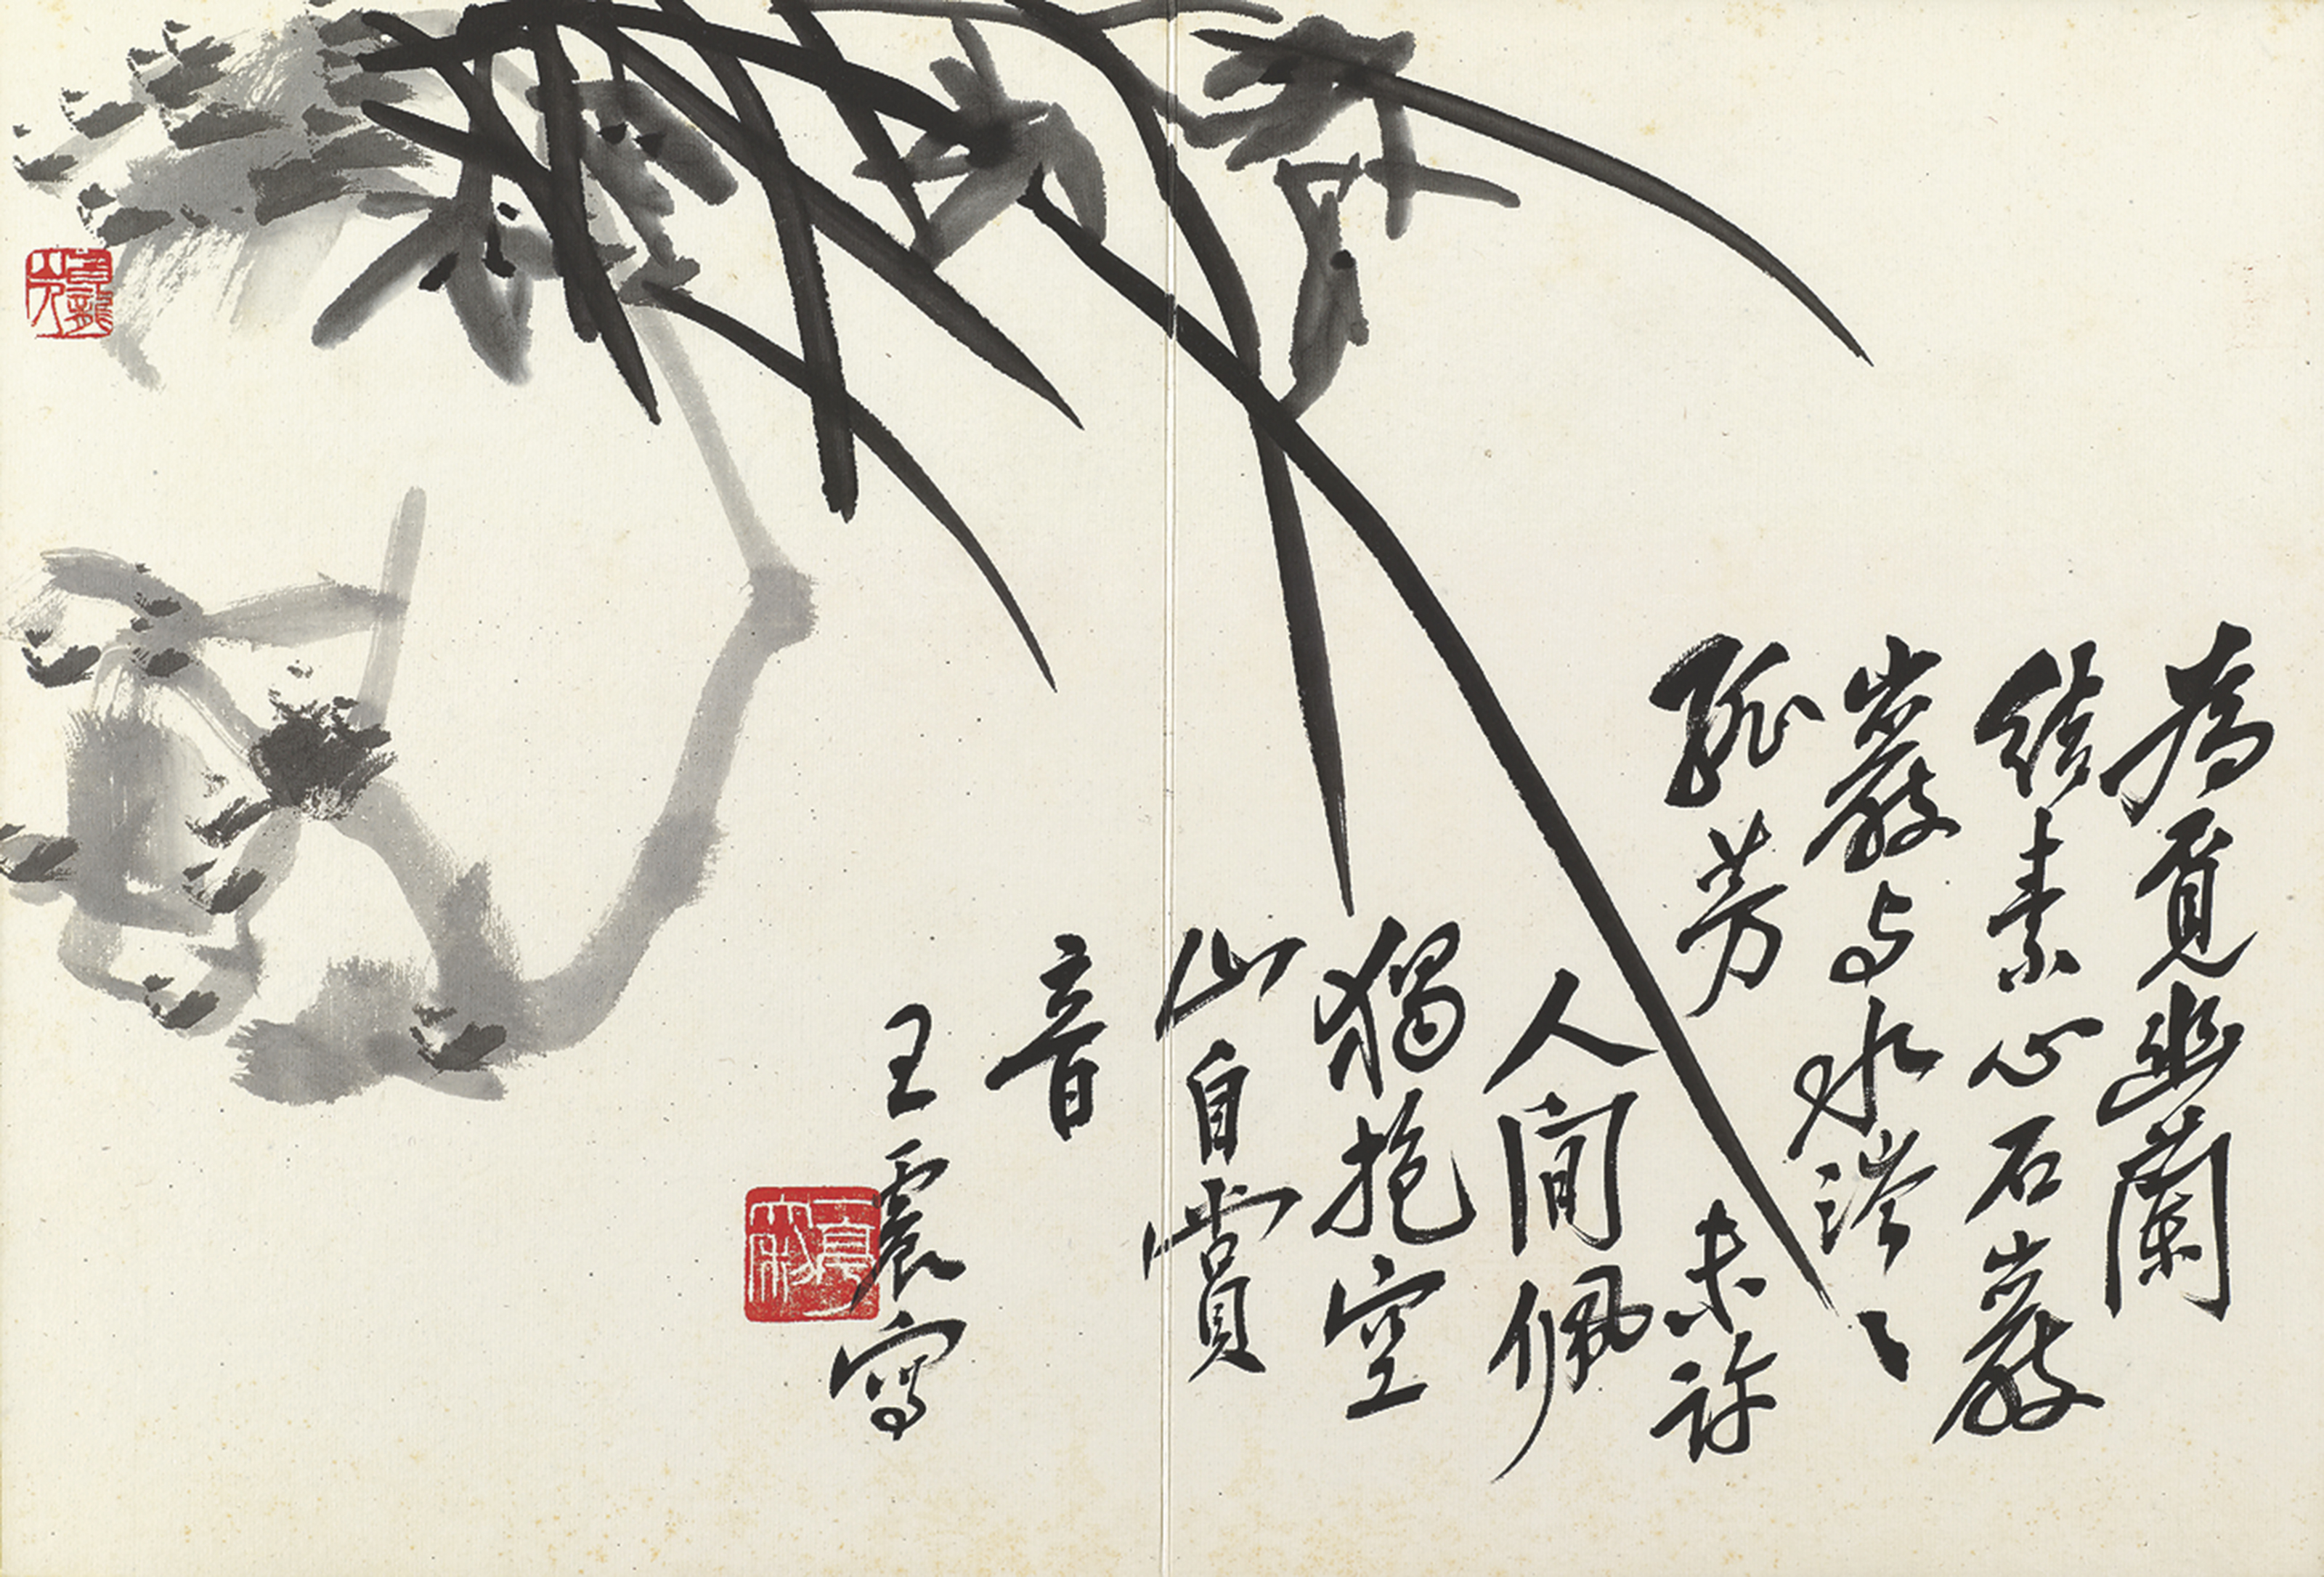 為覓幽蘭
結素心石巖
巖与水涔〻
孤芳未許
人間佩
獨抱空
山自賞
音
王震寫